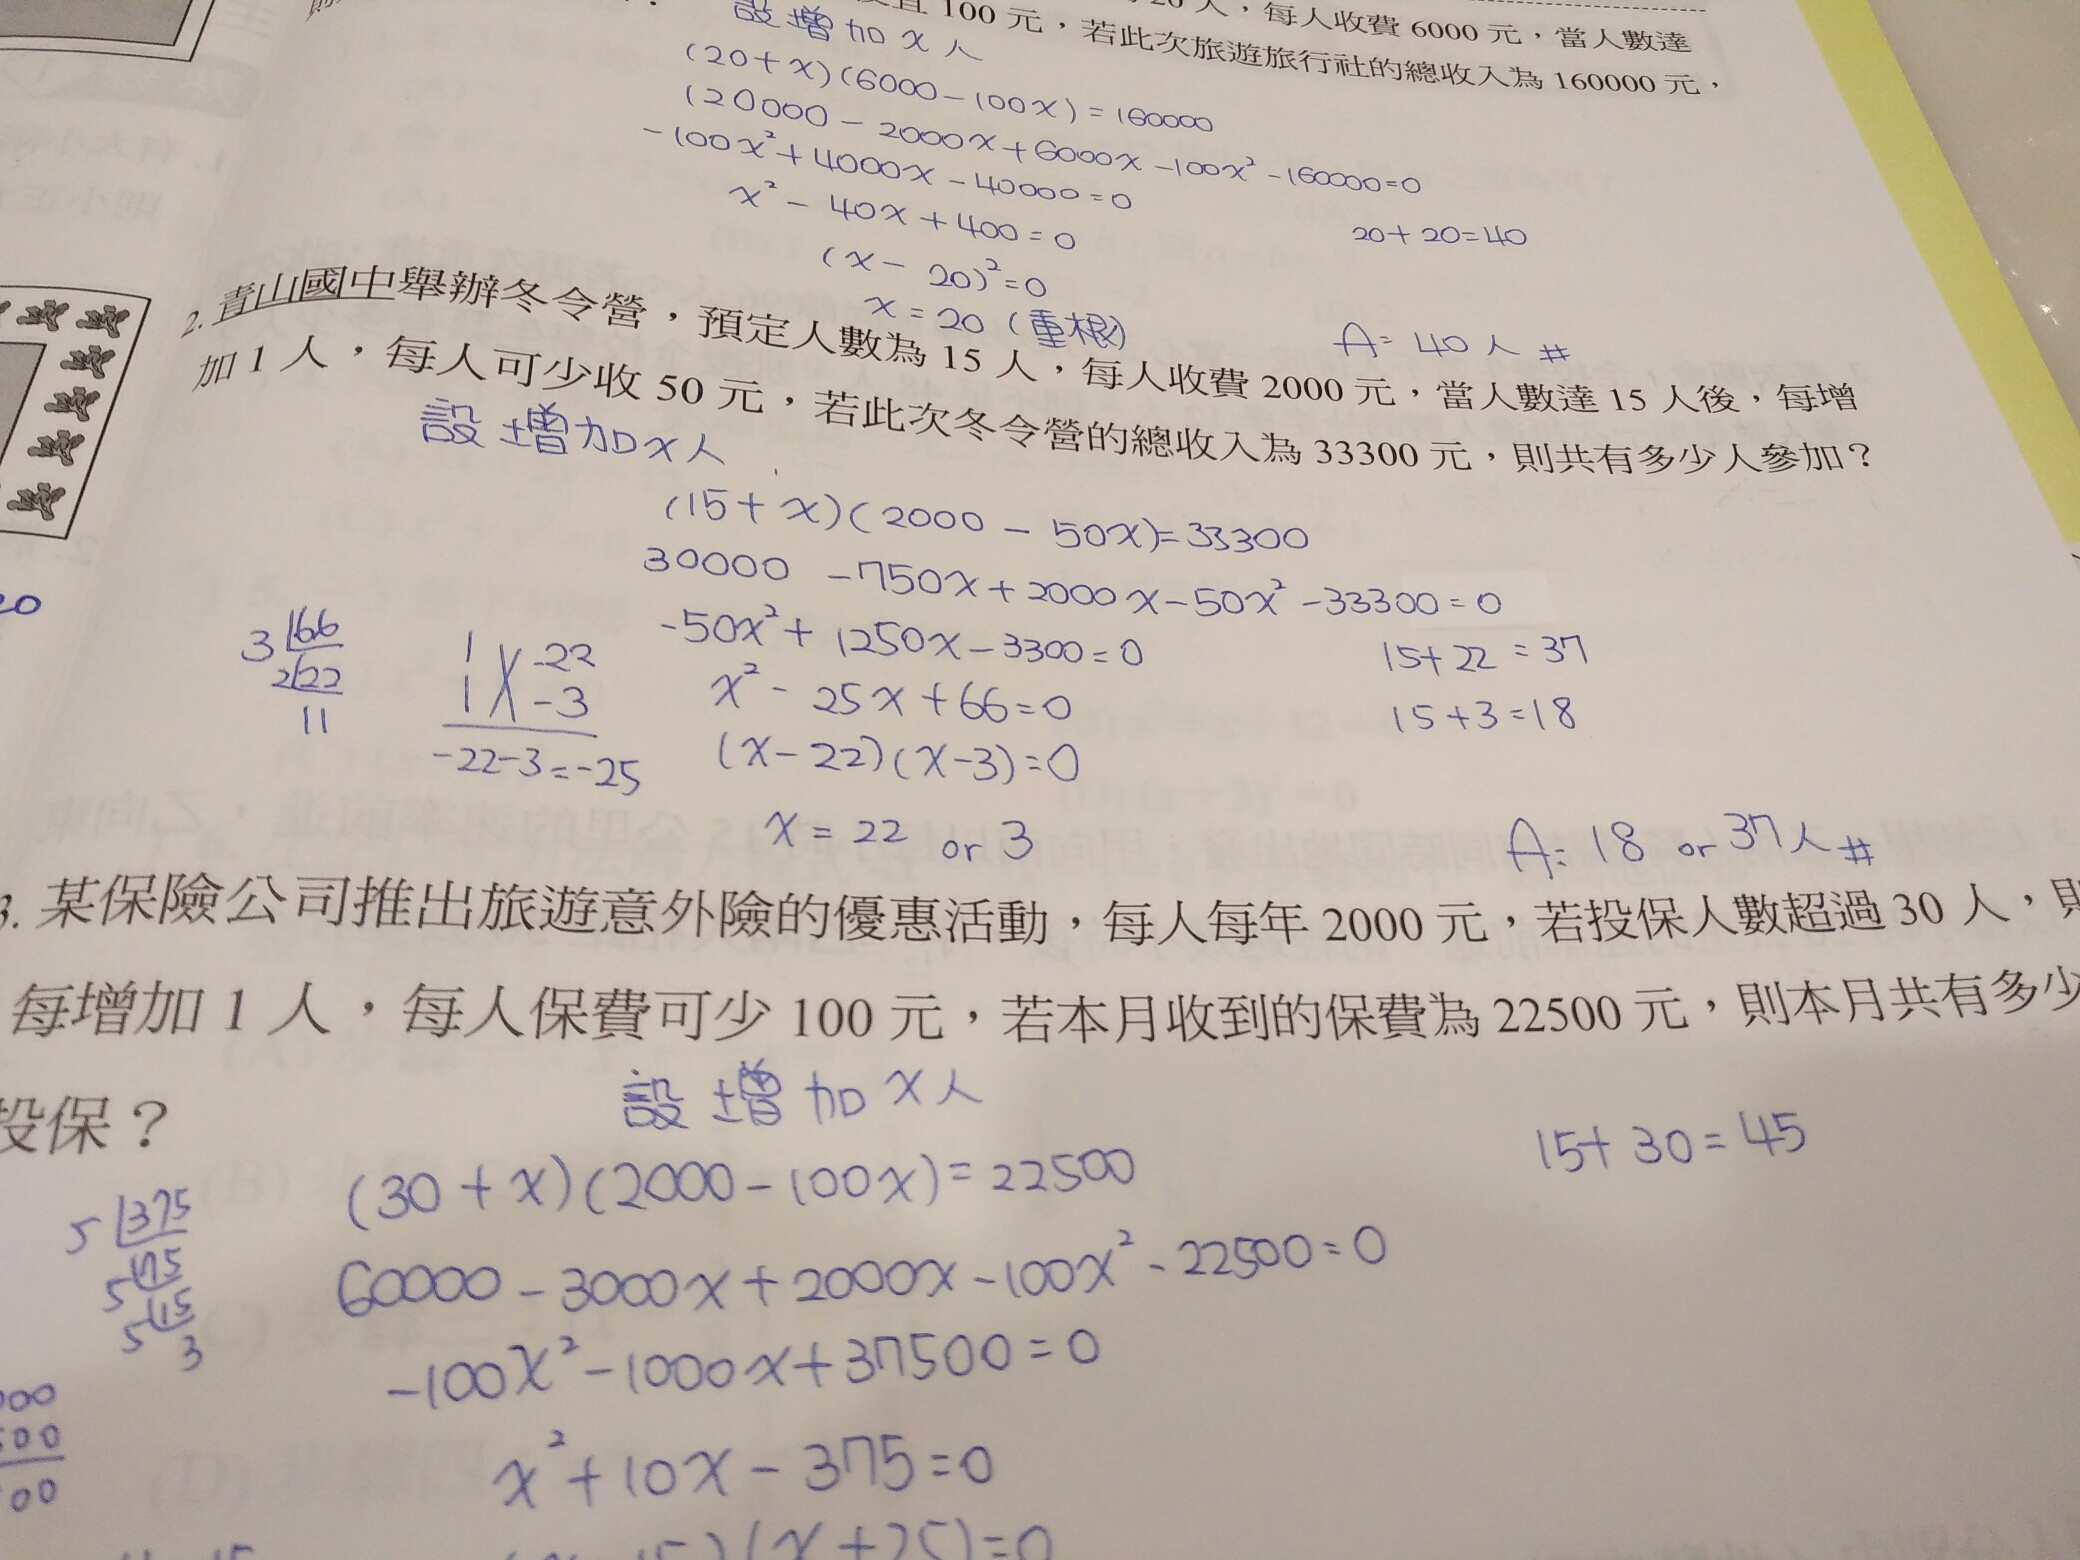 20 人，每人收費 6000 元，當人數達
100 元，若此次旅遊旅行社的總收入為 160000 元，
設增加 x 人
(20+x)(6000-100x)=160000
120000-2000x+6000x-100x²-160000=0
-100x²+4000x-40000=0
x²-40x+400=0
20+20=40
(x-20)²=0
x=20 (重根)
A= 40 人 #
2. 青山國中舉辦冬令營，預定人數為 15 人，每人收費 2000 元，當人數達 15 人後，每增
加 1 人，每人可少收 50 元，若此次冬令營的總收入為 33300 元，則共有多少人參加？
設增加x人
(15+x)(2000-50x)=33300
30000-750x+2000x-50x²-33300=0
-50x²+1250x-3300=0
15+22=37
x²-25x+66=0
15+3=18
(x-22)(x-3)=0
x=22 or 3
3 66
2 22
11
1 -22
1 -3
-22-3=-25
A= 18 or 37人 #
3. 某保險公司推出旅遊意外險的優惠活動，每人每年 2000 元，若投保人數超過 30 人，則
每增加 1 人，每人保費可少 100 元，若本月收到的保費為 22500 元，則本月共有多少
投保？
設增加 x人
15+30=45
(30+x)(2000-100x)=22500
60000-3000x+2000x-100x²-22500=0
-100x²-1000x+37500=0
x²+10x-375=0
(x+25)=0
5 375
5 15
3